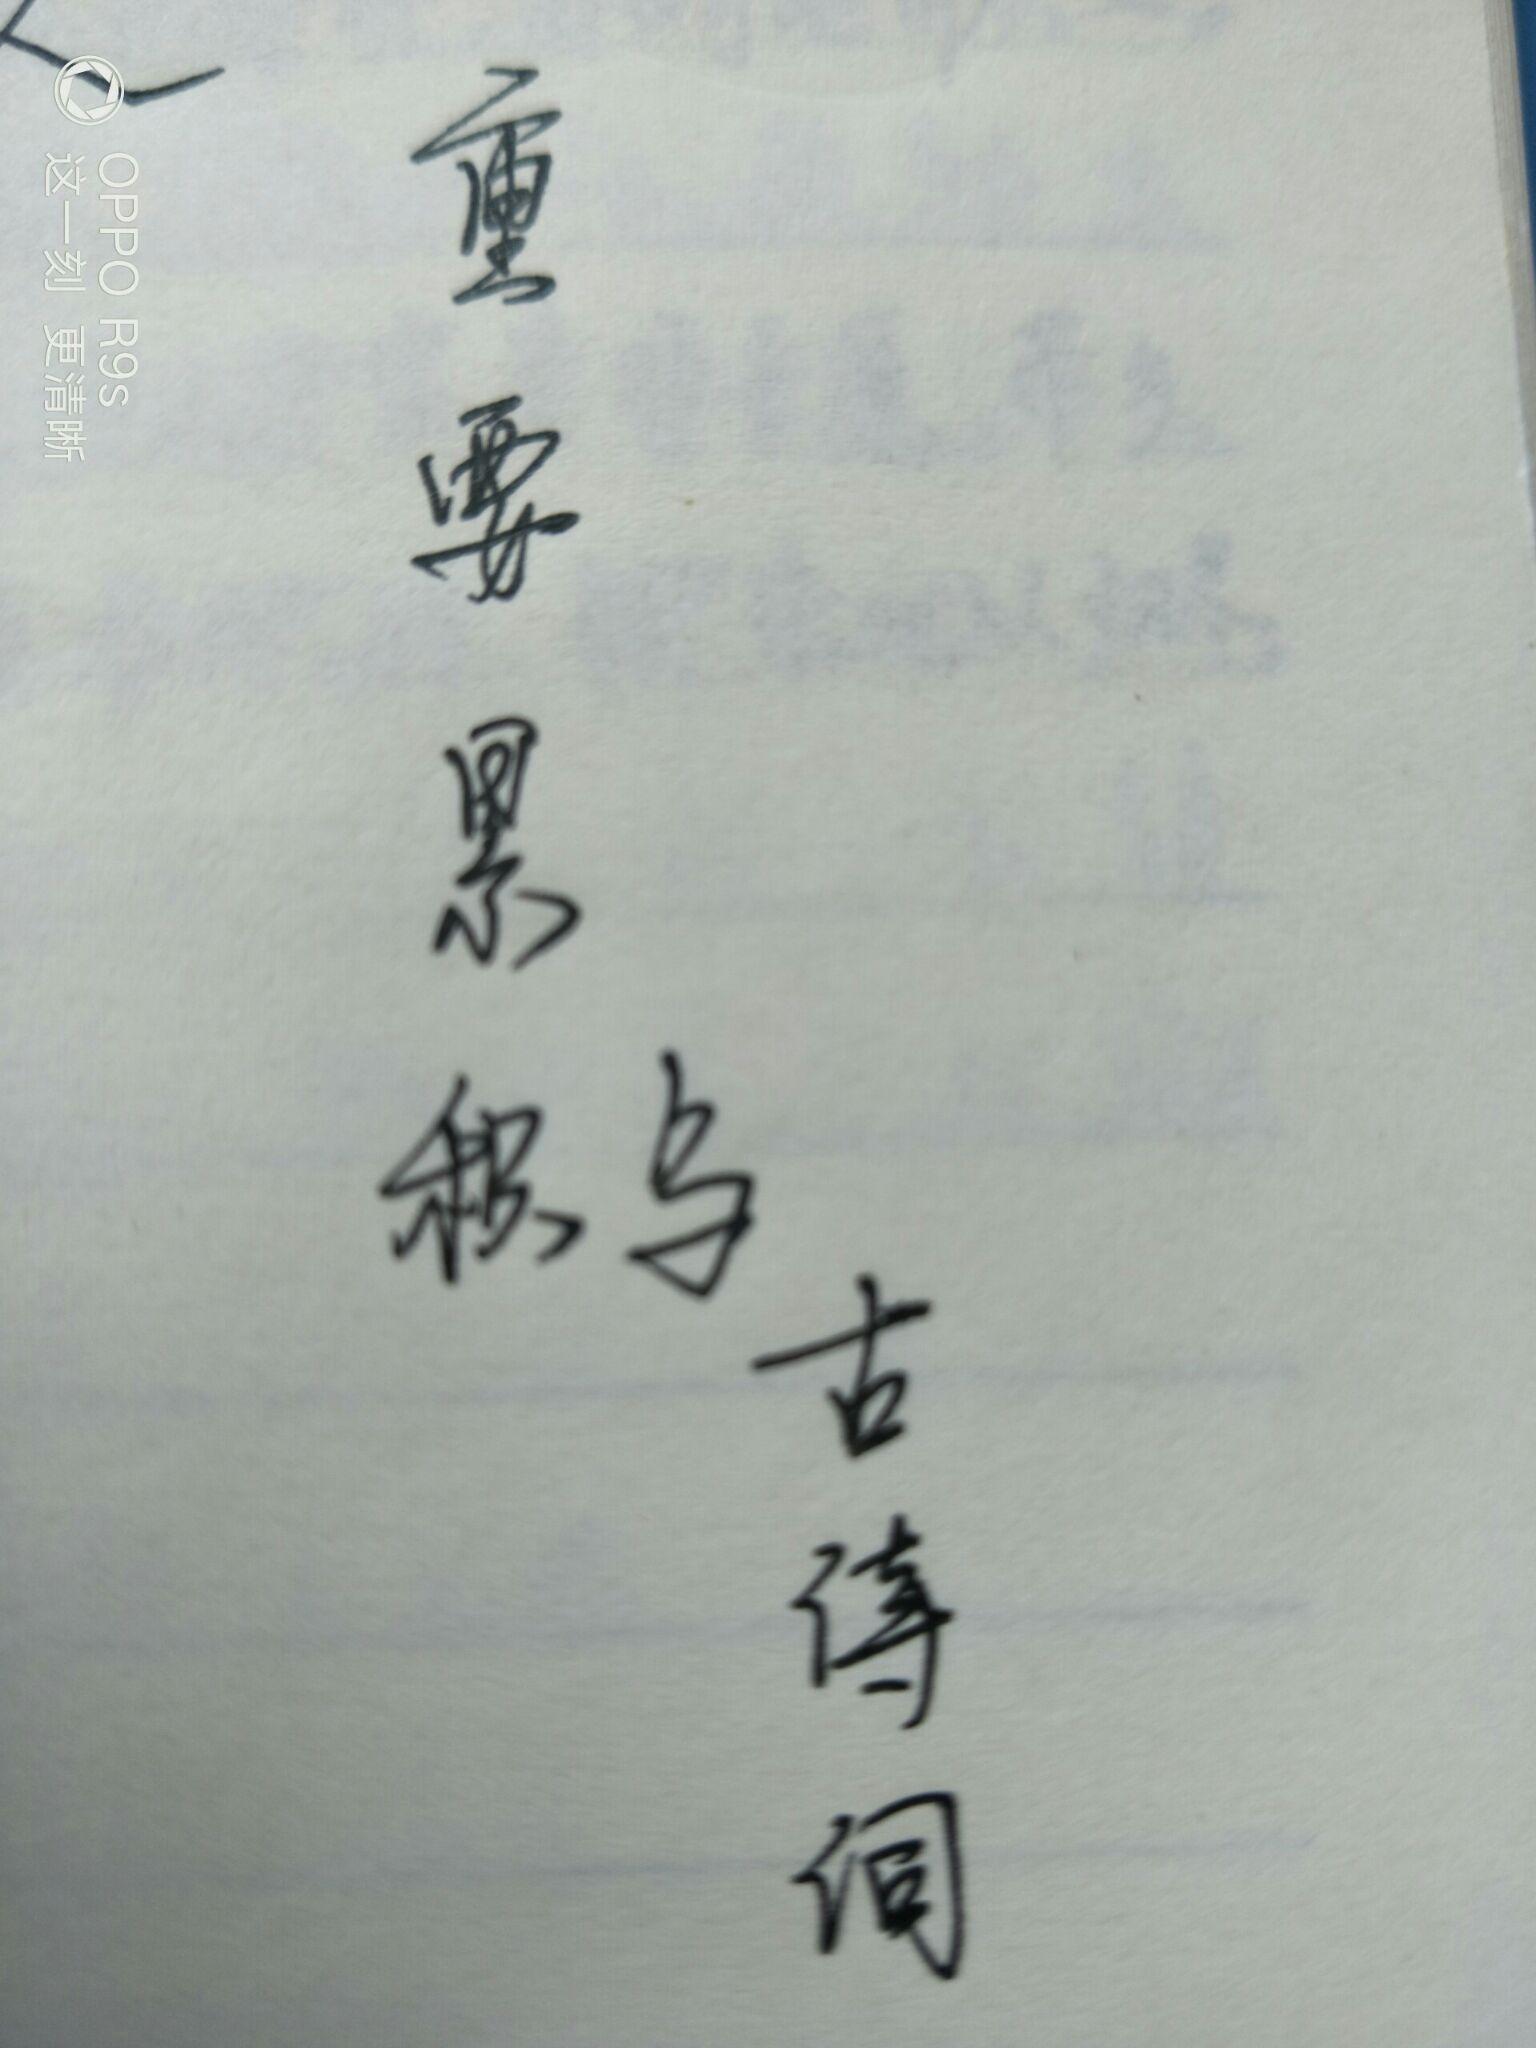 重要累积
与
古诗词
OPPO R9s
这一刻 更清晰